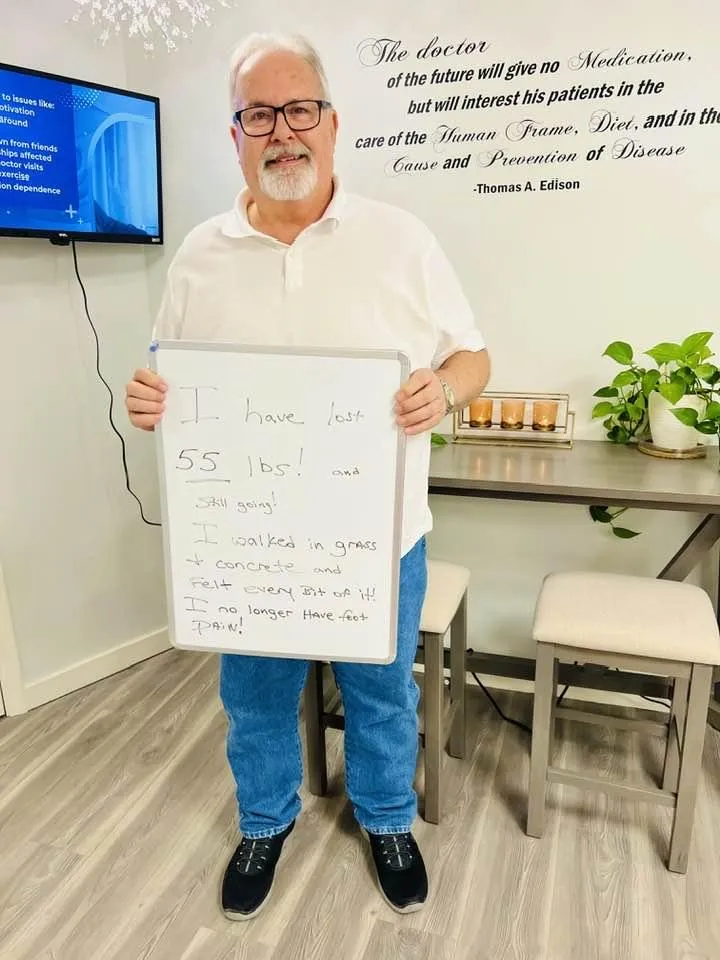 to issues like:
otivation
around
wn from friends
ships affected
octor visits
exercise
ion dependence
The doctor
of the future will give no Medication,
but will interest his patients in the
care of the Human Frame, Diet, and in the
Cause and Prevention of Disease
-Thomas A. Edison
I have lost
55 lbs! and
still going!
I walked in grass
+ concrete and
Felt every Bit of it!
I no longer Have foot
PAiN!